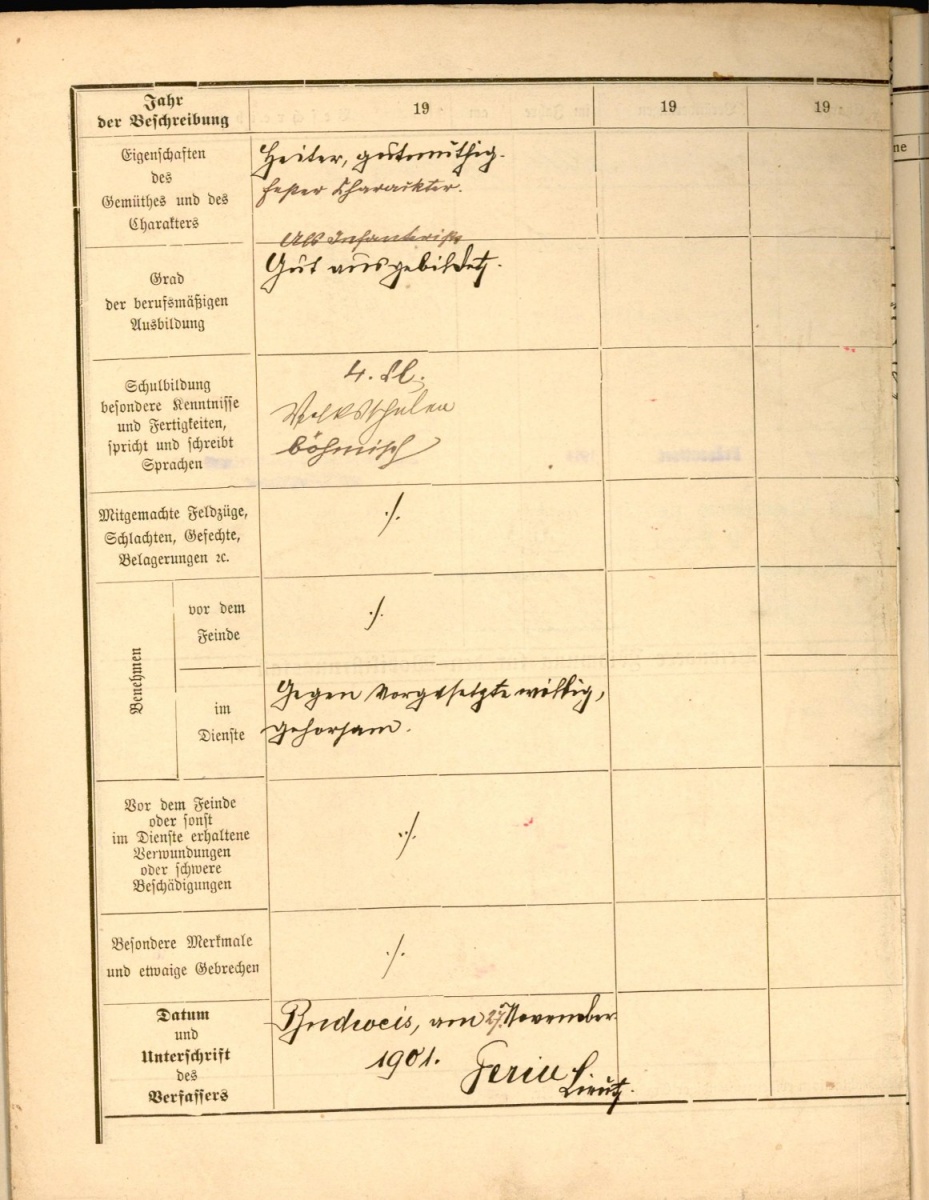 Jahr
der Beschreibung
19
19
19
Eigenschaften
des
Gemüthes und des
Charakters
Heiter, gutmüthig.
fester Charakter.
Grad
der berufsmäßigen
Ausbildung
Als Infanterist
Gut ausgebildet.
Schulbildung
besondere Kenntnisse
und Fertigkeiten,
spricht und schreibt
Sprachen
4. Kl.
Volksschulen
böhmisch
Mitgemachte Feldzüge,
Schlachten, Gefechte,
Belagerungen ꝛc.
./.
Benehmen
vor dem
Feinde
./.
im
Dienste
Gegen Vorgesetzte willig,
gehorsam.
Vor dem Feinde
oder sonst
im Dienste erhaltene
Verwundungen
oder schwere
Beschädigungen
./.
Besondere Merkmale
und etwaige Gebrechen
./.
Datum
und
Unterschrift
des
Verfassers
Budweis, am 27. November
1901.
Lieut.
ne